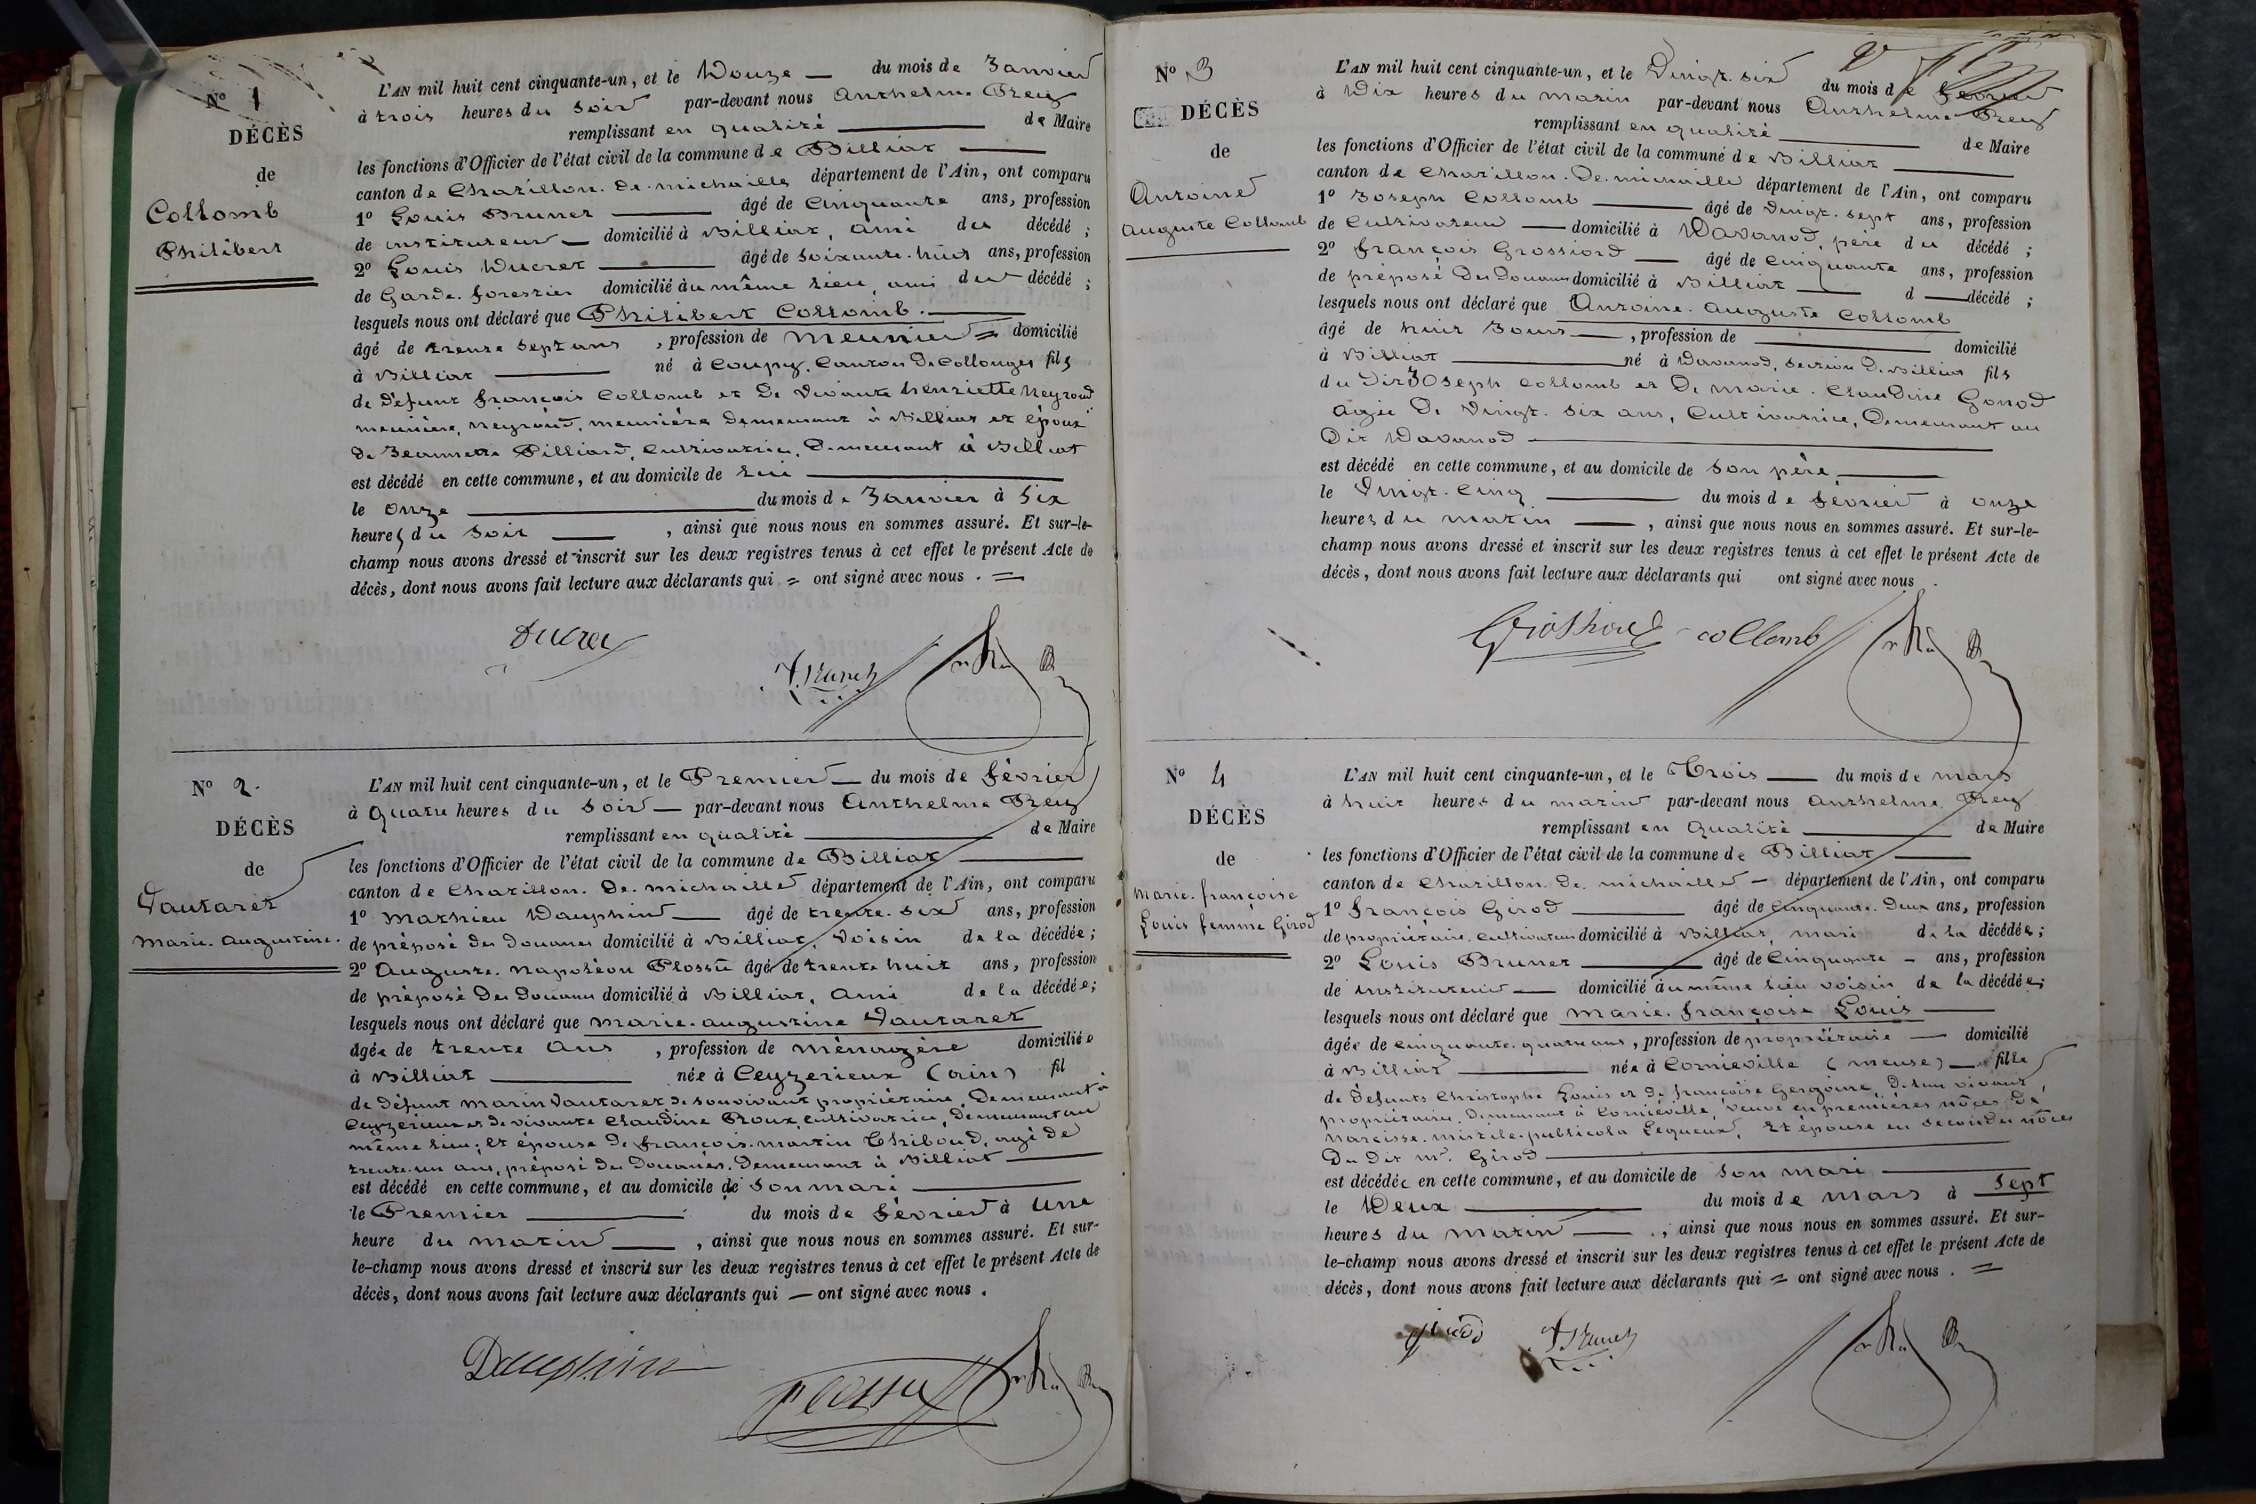 Nº 1
DÉCÈS
de
Collomb
Philibert
L'AN mil huit cent cinquante-un, et le Douze du mois de Janvier
à trois heures du soir par-devant nous Anthelme Prey
remplissant en qualité de Maire
les fonctions d'Officier de l'état civil de la commune de Billiat
canton de Chatillon-de-michaille département de l'Ain, ont comparu
1º Louis Brunet âgé de Cinquante ans, profession
de instituteur domicilié à Billiat, ami du décédé ;
2º Louis Ducret âgé de soixante-huit ans, profession
de Garde-forestier domicilié au même lieu, ami du décédé ;
lesquels nous ont déclaré que Philibert Collomb.
âgé de trente sept ans, profession de meunier domicilié
à Billiat né à Coupy, Canton de Collonges fils
de défunt françois Collomb et de vivante henriette Neyroud
meunière, neyroud, meunière demeurant à Billiat et époux
de Jeannette Pilliard, cultivatrice, demeurant à Billiat
est décédé en cette commune, et au domicile de lui
le onze du mois de Janvier à six
heures du soir, ainsi que nous nous en sommes assuré. Et sur-le-
champ nous avons dressé et inscrit sur les deux registres tenus à cet effet le présent Acte de
décès, dont nous avons fait lecture aux déclarants qui = ont signé avec nous. =
Ducret
Brunet
Nº 2.
DÉCÈS
de
Vautaret
Marie-augustine.
L'AN mil huit cent cinquante-un, et le Premier du mois de février
à quatre heures du soir par-devant nous Anthelme Prey
remplissant en qualité de Maire
les fonctions d'Officier de l'état civil de la commune de Billiat
canton de Chatillon-de-michaille département de l'Ain, ont comparu
1º Mathieu Dauphin âgé de trente-six ans, profession
de préposé des douanes domicilié à Billiat, voisin de la décédée ;
2º Auguste-Napoléon Plossu âgé de trente huit ans, profession
de préposé des douanes domicilié à Billiat, ami de la décédée ;
lesquels nous ont déclaré que marie-augustine Vautaret
âgée de trente ans, profession de ménagère domiciliée
à Billiat née à Ceyzerieux (ain) fil
de défunt marin Vautaret de son vivant propriétaire, demeurant à
Ceyzerieux et de vivante Claudine Roux, cultivatrice, demeurant au
même lieu; et épouse de françois-martin Thiboud, agé de
trente-un ans, préposé des Douanes, demeurant à Billiat
est décédé en cette commune, et au domicile de son mari
le Premier du mois de février à une
heure du matin, ainsi que nous nous en sommes assuré. Et sur-
le-champ nous avons dressé et inscrit sur les deux registres tenus à cet effet le présent Acte de
décès, dont nous avons fait lecture aux déclarants qui — ont signé avec nous.
Dauphin
Plossu
Nº 3
DÉCÈS
de
Antoine
Auguste Collomb
L'AN mil huit cent cinquante-un, et le Vingt-six du mois de février
à Dix heures du matin par-devant nous Anthelme Prey
remplissant en qualité de Maire
les fonctions d'Officier de l'état civil de la commune de Billiat
canton de Chatillon-de-michaille département de l'Ain, ont comparu
1º Joseph Collomb âgé de vingt-sept ans, profession
de Cultivateur domicilié à Davanod, père du décédé ;
2º françois Grossiord âgé de cinquante ans, profession
de préposé des Douanes domicilié à Billiat d décédé ;
lesquels nous ont déclaré que Antoine-auguste Collomb
âgé de huit Jours, profession de domicilié
à Billiat né à Davanod, section de Billiat fils
du dit Joseph Collomb et de marie-Claudine Gonod
agée de vingt-six ans, Cultivatrice, demeurant au
dit Davanod
est décédé en cette commune, et au domicile de son père
le vingt-cinq du mois de février à onze
heures du matin, ainsi que nous nous en sommes assuré. Et sur-le-
champ nous avons dressé et inscrit sur les deux registres tenus à cet effet le présent Acte de
décès, dont nous avons fait lecture aux déclarants qui ont signé avec nous.
Grossiord collomb
Nº 4
DÉCÈS
de
Marie-françoise
Louis femme Girod
L'AN mil huit cent cinquante-un, et le Trois du mois de mars
à huit heures du matin par-devant nous Anthelme Prey
remplissant en qualité de Maire
les fonctions d'Officier de l'état civil de la commune de Billiat
canton de Chatillon-de-michaille département de l'Ain, ont comparu
1º françois Girod âgé de cinquante-deux ans, profession
de propriétaire, cultivateur domicilié à Billiat, mari de la décédée ;
2º Louis Brunet âgé de Cinquante ans, profession
de instituteur domicilié au même lieu voisin de la décédée ;
lesquels nous ont déclaré que marie-françoise Louis
âgée de cinquante-quatre ans, profession de propriétaire domicilié
à Billiat née à Corniéville (meuse) fille
de défunts Christophe Louis et de françoise Gergoine, de leur vivant,
propriétaires, demeurant à Corniéville, veuve en premières nôces de
Narcisse publicola Lequeux, et épouse en secondes nôces
du dit Mr. Girod
est décédée en cette commune, et au domicile de son mari
le Deux du mois de mars à sept
heures du matin, ainsi que nous nous en sommes assuré. Et sur-
le-champ nous avons dressé et inscrit sur les deux registres tenus à cet effet le présent Acte de
décès, dont nous avons fait lecture aux déclarants qui = ont signé avec nous. =
girod Brunet